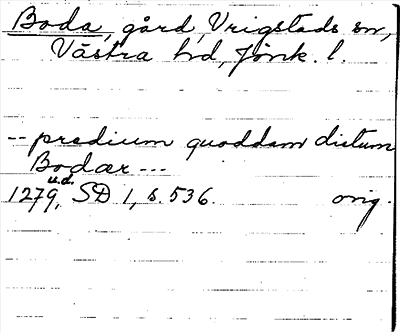 Boda, gård, Vrigstads sn,
Västra hd, Jönk. l.
-- predium quoddam dictum
Bodær ---
1279, u.d. SD 1, s. 536. orig.